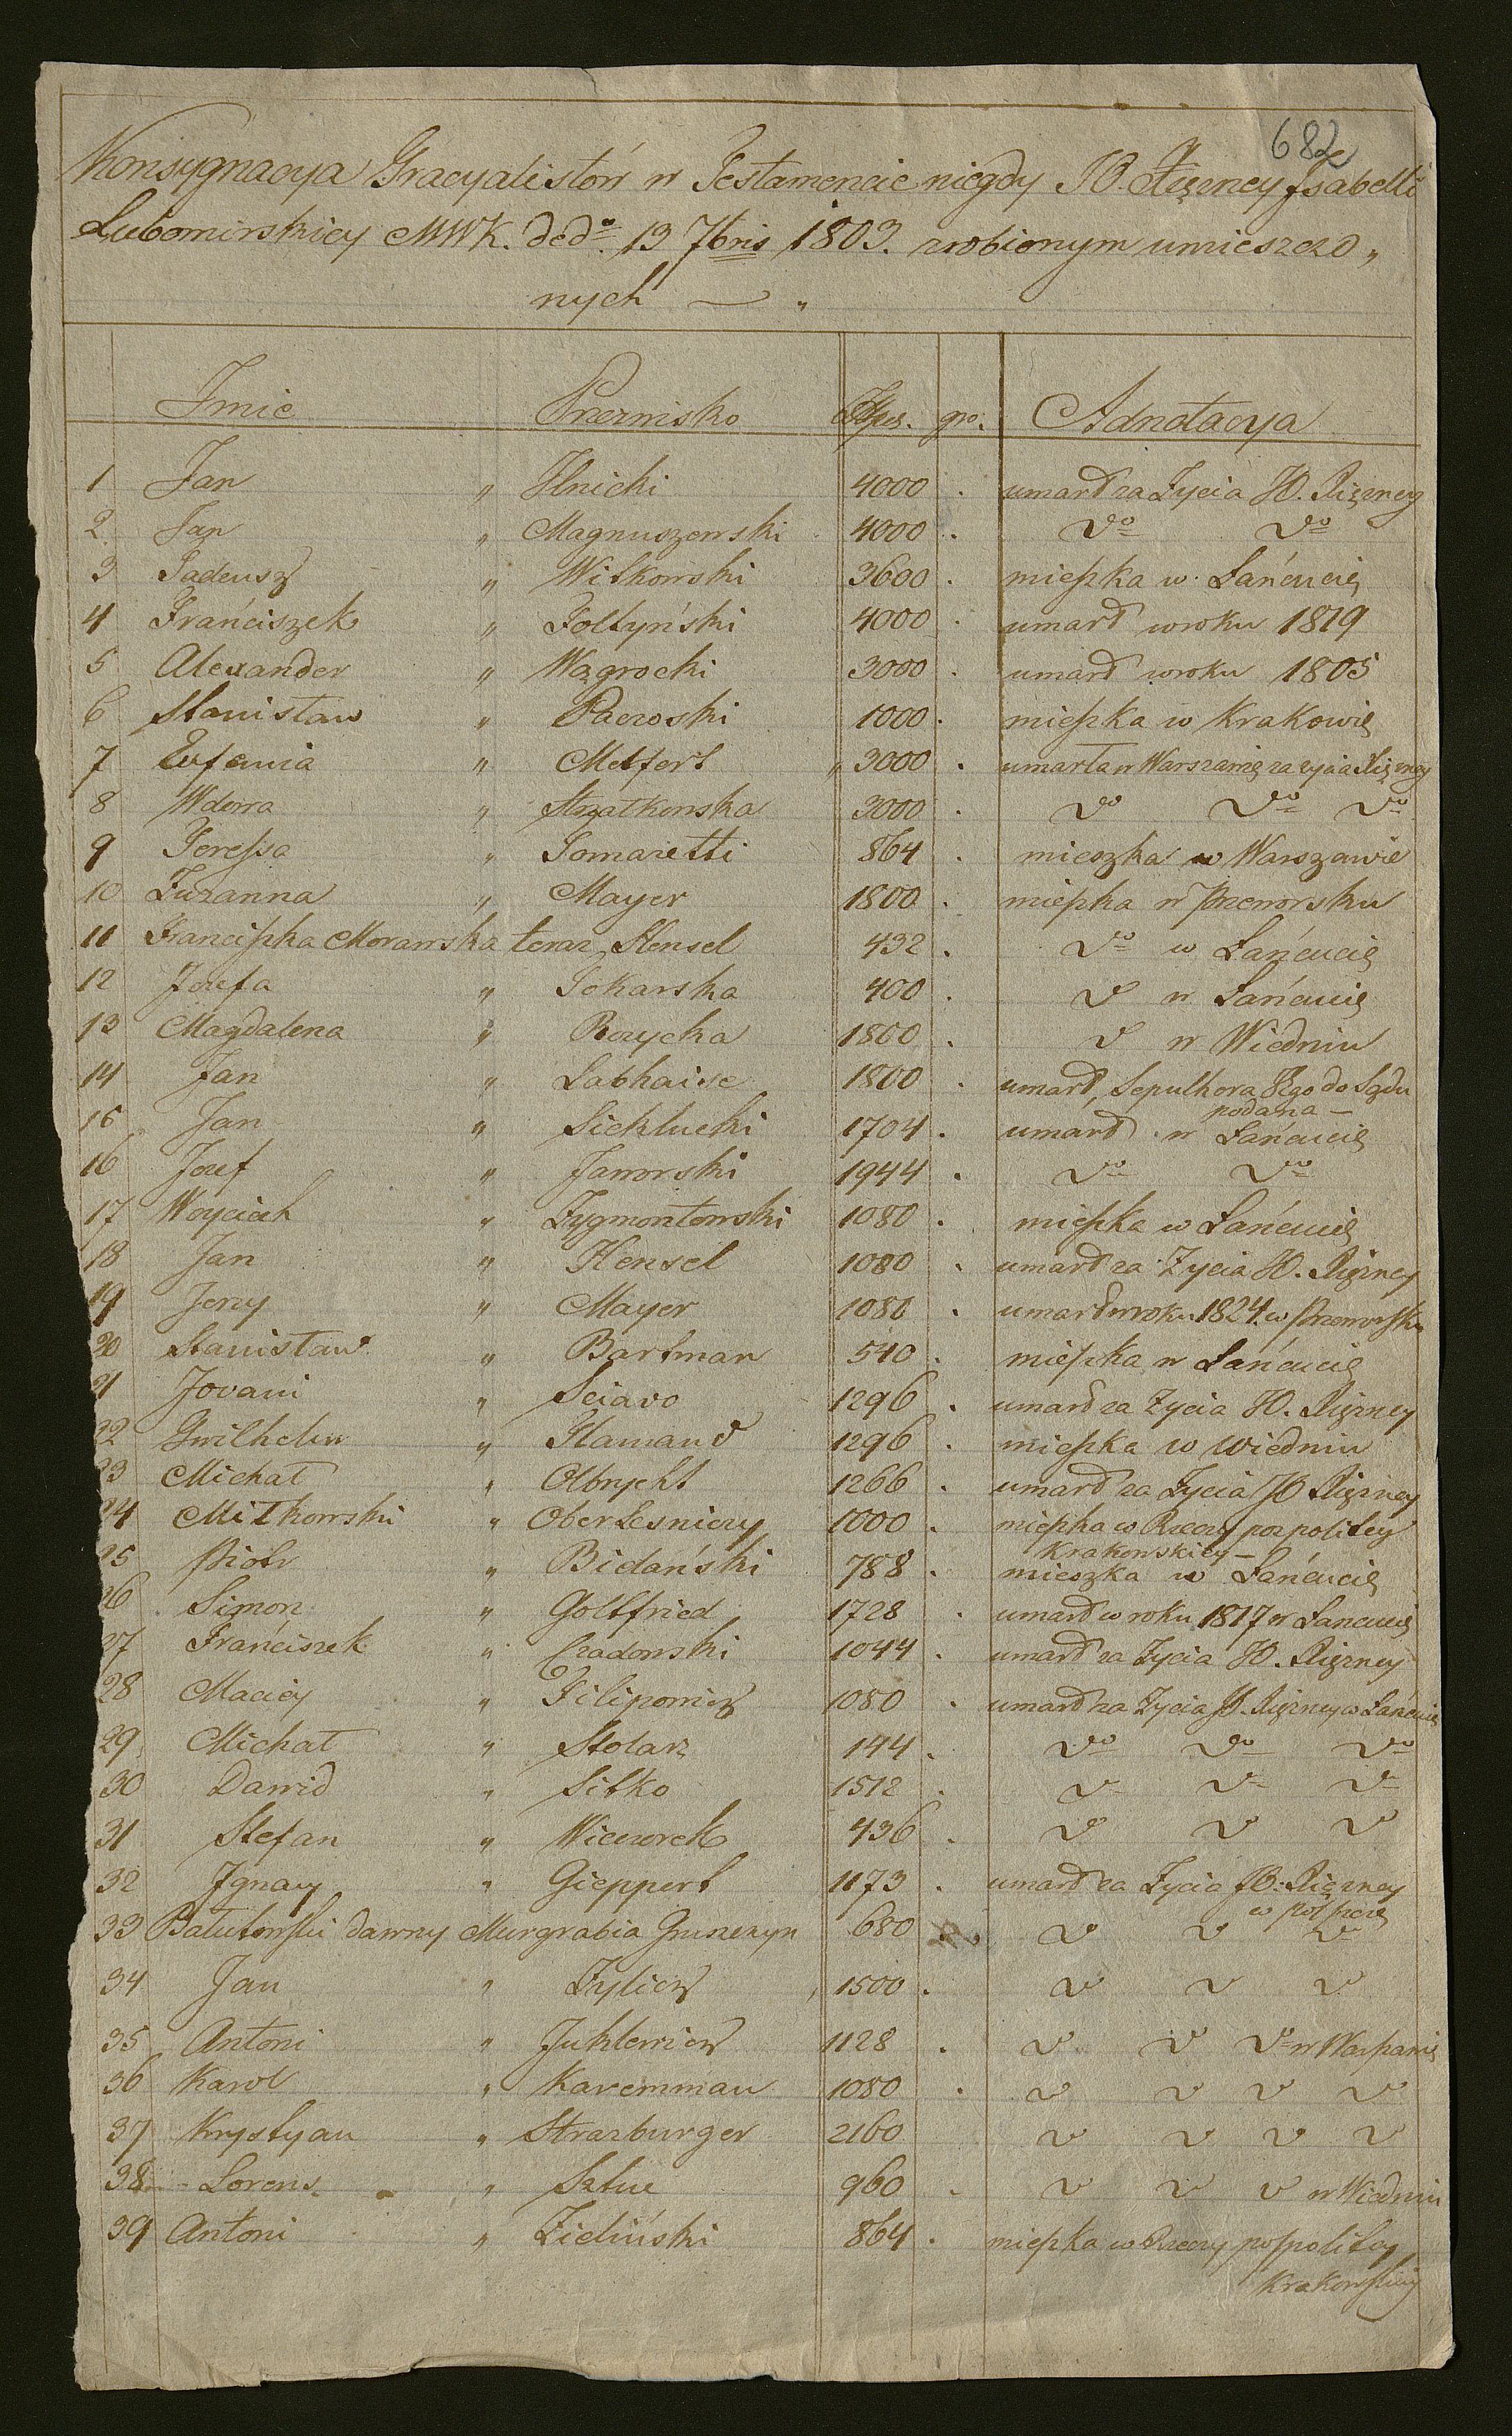 682
Konsygnacya Gracyalistów w Testamencie niegdy JO. Xiężney Jsabelli
Lubomirskiey MWK. dedo. 13 7bris 1803. zrobionym umieszczo„
nych — „
Jmie Przezwisko Złpol. gro. Adnotacya
1 Jan „ Ilnicki 4000 . umarł za Życia JO. Xiężney
2 Jan „ Magnuszewski 4000 . do do
3 Tadeusz „ Witkowski 3600 . mieszka w Łańcucie
4 Frańciszek „ Foltyński 4000 . umarł wroku 1819
5 Alexander „ Wągrocki 3000 . umarł wroku 1805
6 Stanisław „ Paczoski 1000 . mieszka w Krakowie
7 Eufemia „ Metfert „ 3000 . umarła w Warszawie za życia Xiężney
8 Wdowa „ Strzałkowska 3000 . do do do
9 Teressa „ Tomazetti 864 . mieszka w Warszawie
10 Zuzanna „ Mayer 1800 . mieszka w Przeworsku
11 Franciszka Morawska teraz Hensel 432 . do w Łańcucie
12 Jozefa „ Tokarska 400 . do w Łańcucie
13 Magdalena „ Rozycka 1800 . do w Wiedniu
14 Jan „ Labhaise 1800 . umarł, Sepulkora Jego do Sądu
podana —
15 Jan „ Sieklucki 1704 . umarł w Łańcucie
16 Jozef „ Jaworski 1944 . do do
17 Woyciech „ Zygmontowski 1080 . mieszka w Łańcucie
18 Jan „ Hensel 1080 . umarł za Życia JO. Xiężney
19 Jerzy „ Mayer 1080 . umarł wroku 1824. w Przeworsku
20 Stanisław „ Bartman 540 . mieszka w Łańcucie
21 Jovani „ Sciavo 1296 . umarł za Życia JO. Xiężney
22 Gwilhelm „ Flamand 1296 . mieszka w Wiedniu
23 Michał „ Olbrycht 1266 . umarł za Życia JO Xiężney
24 Mitkowski „ Ober Lesniczy 1000 . mieszka w Rzeczy pospolitey
Krakowskiey —
25 Piotr „ Bidański 788 . mieszka w Łańcucie
26 Simon „ Goltfried 1728 . umarł w roku 1817 w Lancucie
27 Frańciszek „ Czadowski 1044 . umarł za Życia JO. Xiężney
28 Maciey „ Filipowicz 1080 . umarł za Życia JO. Xiężney w Łańcucie
29 Michał „ Stolarz 144 . do do do
30 Dawid „ Sitko 1512 . do do do
31 Stefan „ Wieczorek 436 . do do do
32 Jgnacy „ Gieppert 1173 . umarł za Życia JO: Xiężney
w Polszcze
33 Batutowski dawny Murgrabia Gruszczyn 680 . do do do
34 Jan „ Zylicz 1500 . do do do
35 Antoni „ Juchlewicz 1128 . do do do w Warszawie
36 Karol „ Karemman 1080 . do do do do
37 Krystyan „ Strazburger 2160 do do do do
38 Lorens „ Sztuc 960 . do do do w Wiedniu
39 Antoni „ Zieliński 864 . mieszka w Rzeczy pospolitey
Krakowskiey